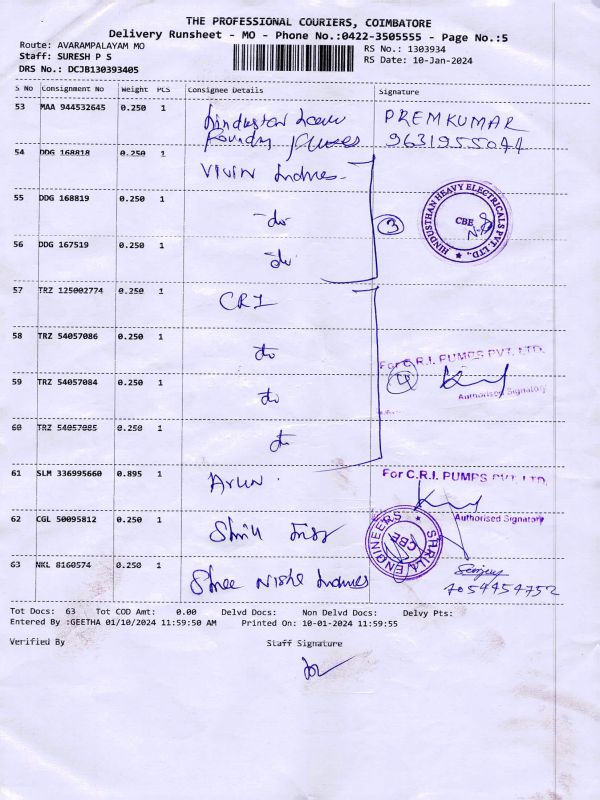 THE PROFESSIONAL COURIERS, COIMBATORE
Delivery Runsheet - MO - Phone No.:0422-3505555 - Page No.:5
Route: AVARAMPALAYAM MO
RS No.: 1303934
Staff: SURESH P S
RS Date: 10-Jan-2024
DRS No.: DCJB130393405
S No Consignment No Weight PCS Consignee Details Signature
53 MAA 944532645 0.250 1
PREMKUMAR
54 DDG 168818 0.250 1 VIVIN
55 DDG 168819 0.250 1 do
3
HINDUSTHAN HEAVY ELECTRICALS PVT. LTD.,
CBE
56 DDG 167519 0.250 1 do
57 TRZ 125002774 0.250 1 CRI
58 TRZ 54057086 0.250 1 do
For C.R.I. PUMPS PVT. LTD.
4
59 TRZ 54057084 0.250 1 do
Authorised Signatory
60 TRZ 54057085 0.250 1 do
61 SLM 336995660 0.895 1 Arun
For C.R.I. PUMPS PVT. LTD.
62 CGL 50095812 0.250 1
Authorised Signatory
ENGINEERS
CBE
63 NKL 8160574 0.250 1 Shree Nisha
7054454752
Tot Docs: 63 Tot COD Amt: 0.00 Delvd Docs: Non Delvd Docs: Delvy Pts:
Entered By :GEETHA 01/10/2024 11:59:50 AM Printed On: 10-01-2024 11:59:55
Verified By Staff Signature